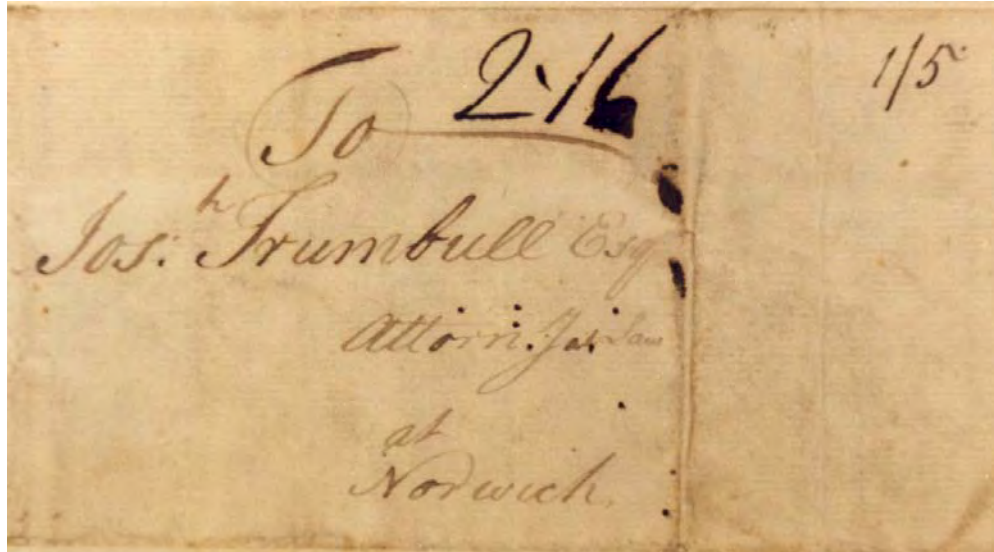 2·16
1/5
To
Jos.h Trumbull Esq
Attorny at Law
at
Norwich.